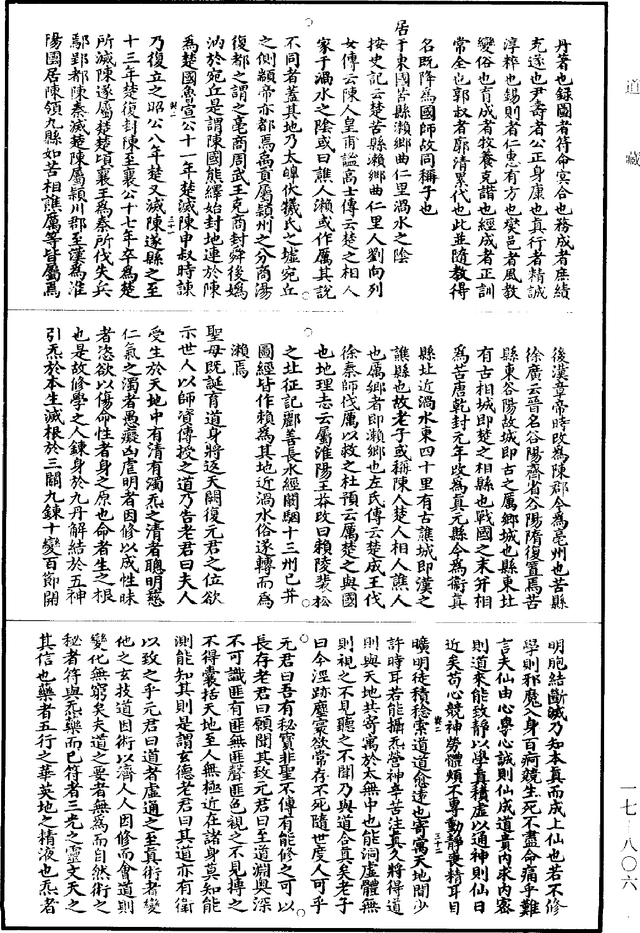 道藏
丹著也錄圖者符命冥合也務成者庶績
克遂也尹壽者公正身康也真行者精誠
淳粹也錫則者仁惠有方也爕邑者風教
變俗也育成者牧養克諧也經成者正訓
常全也郭叔者廓清累代也此並隨教得
名既降為國師故同稱子也
居于東國苦縣瀨鄉曲仁里渦水之陰
按史記云楚苦縣瀨鄉曲仁里人劉向列
女傳云陳人皇甫謐高士傳云楚之相人
家于渦水之陰或曰譙人瀨或作厲其說
不同者蓋其地乃太皥伏犧氏之墟宛丘
之側顓帝亦都焉禹貢屬潁州之分商湯
復都之謂之亳商周武王克商封舜後媯
汭於宛丘是謂陳國熊繹始封地連於陳
為楚國魯宣公十一年楚滅陳申叔時諫
乃復立之昭公八年楚又滅陳遂縣之至
十三年楚復封陳至襄公十七年卒為楚
所滅陳遂屬楚楚頃襄王為秦所伐失兵
鄢郢都陳秦滅楚陳屬潁川郡至漢為淮
陽國居陳領九縣如苦柤譙厲等皆屬焉
後漢章帝時改為陳郡今為亳州也苦縣
徐廣云晉名谷陽齊省谷陽隋復置焉苦
縣東谷陽故城即古之厲鄉城也縣東北
有古相城即楚之相縣也戰國之末并相
為苦唐乾封元年改為真元縣今為衛真
縣北近渦水東四十里有古譙城即漢之
譙縣也故老子或稱陳人楚人相人譙人
也厲鄉者即瀨鄉也左氏傳云楚成王伐
徐秦師伐厲以救之杜預云厲楚之與國
也地理志云屬淮陽王莽改曰賴陵裴松
之北征記酈善長水經闞駰十三州已并
圖經皆作賴為其地近渦水俗遂轉而為
瀨焉
聖母既誕育道身將返天闕復元君之位欲
示世人以師資傳授之道乃告老君曰夫人
受生於天地中有清有濁炁之清者聰明慈
仁氣之濁者愚癡凶虐明者因修以成性昧
者恣欲以傷命性者身之原也命者生之根
也是故修學之人鍊身於九丹解結於五神
引炁於本生滅根於三關九鍊十變百節開
明胞結斷滅乃知本真而成上仙也若不修
學則邪魔入身百痾競生死不盡命痛乎難
言夫仙由心學心誠則仙成道貴內求內密
則道來能致靜以學真積虛以通神則仙日
近矣苟心競神勞體煩不專動靜喪精耳目
曠明徒積稔索道道愈遠也寄寓天地間少
許時耳若能攝炁營神辛苦注真久將得道
則與天地共寄寓於太無中也能洞虛體無
則視之不見聽之不聞乃與道合真矣老子
曰今涇跡塵寰欲常存不死隨世度人可乎
元君曰吾有祕寶非聖不傳有能修之可以
長存老君曰願聞其致元君曰至道淵奧深
不可識匪有匪無匪聲匪色視之不見摶之
不得囊括天地至人無極近在諸身莫知能
測能知其則是謂玄德老君曰其道亦有術
以致之乎元君曰道者虛通之至真術者變
化之玄技道因術以濟人人因修而會道則
變化無窮矣夫道之要者無為而自然術之
秘者符與炁藥而已符者三光之靈文天之
其信也藥者五行之華英地之精液也炁者
一七—八〇六